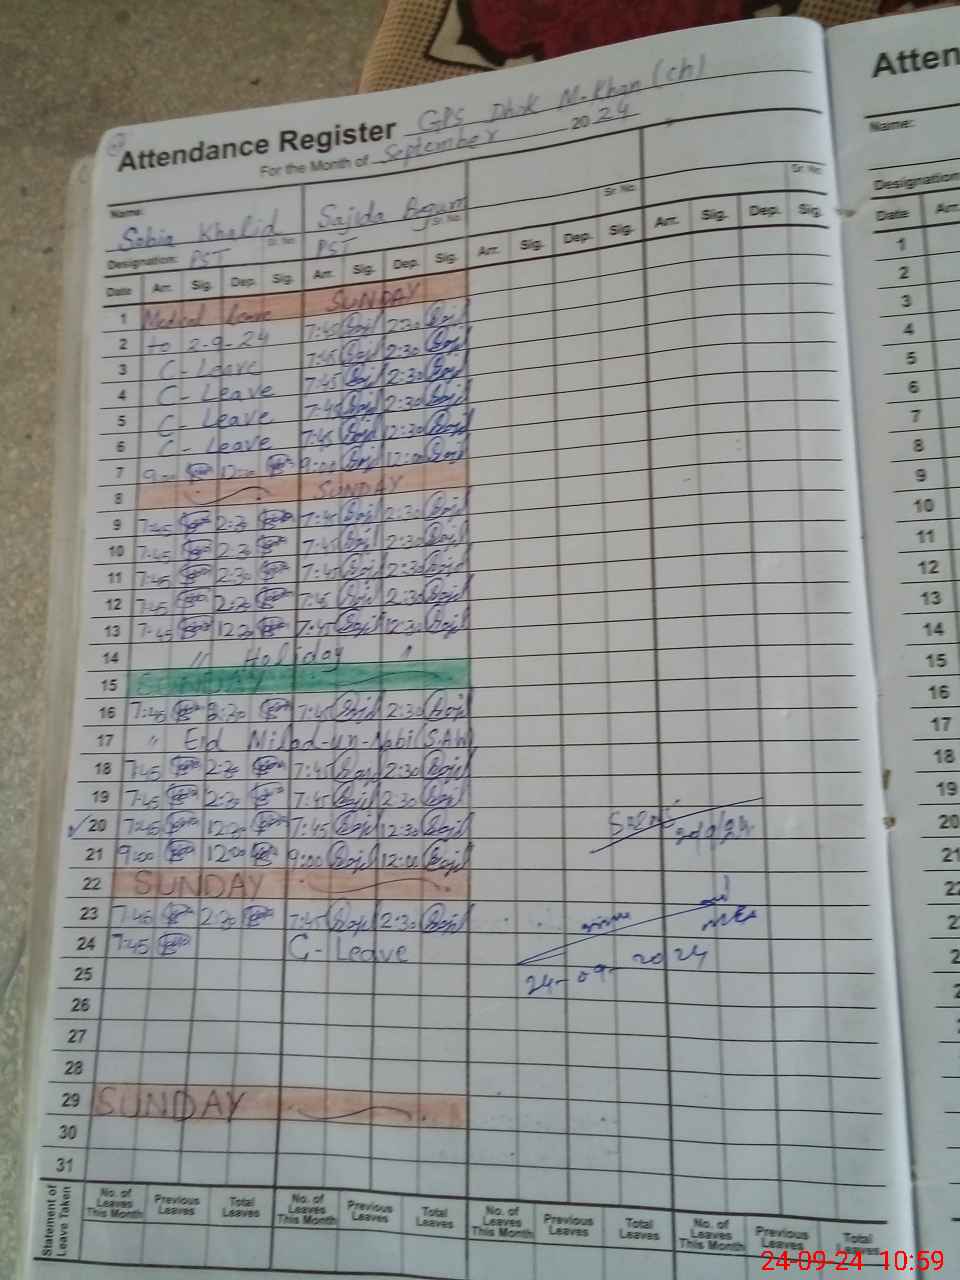 Attendance Register GPS Dhok M-Khan (ch)
For the Month of September 2024
Name: Sobia Khalid Sr. No. Sajida Begum Sr. No. Sr. No. Sr. No.
Designation: PST PST
Date Arr. Sig. Dep. Sig. Arr. Sig. Dep. Sig. Arr. Sig. Dep. Sig. Arr. Sig. Dep. Sig.
1 Medical Leave SUNDAY
2 to 2-9-24 7:45 2:30
3 C-Leave 7:45 2:30
4 C-Leave 7:45 2:30
5 C-Leave 7:45 2:30
6 C-Leave 7:45 12:30
7 9:00 12:00 9:00 12:00
8 SUNDAY
9 7:45 2:30 7:45 2:30
10 7:45 2:30 7:45 2:30
11 7:45 2:30 7:45 2:30
12 7:45 2:30 7:45 2:30
13 7:45 12:30 7:45 12:30
14 " Holiday "
15 SUNDAY
16 7:45 2:30 7:45 2:30
17 " Eid Milad-un-Nabi (S.A.W)
18 7:45 2:30 7:45 2:30
19 7:45 2:30 7:45 2:30
20 7:45 12:30 7:45 12:30 20/9/24
21 9:00 12:00 9:00 12:00
22 SUNDAY
23 7:45 2:30 7:45 2:30
24 7:45 C-Leave
24-09-2024
25
26
27
28
29 SUNDAY
30
31
Statement of Leave Taken
No. of Leaves This Month Previous Leaves Total Leaves No. of Leaves This Month Previous Leaves Total Leaves No. of Leaves This Month Previous Leaves Total Leaves No. of Leaves This Month Previous Leaves Total Leaves
Atten
Name:
Designation
Date Arr.
1
2
3
4
5
6
7
8
9
10
11
12
13
14
15
16
17
18
19
20
21
24-09-24 10:59